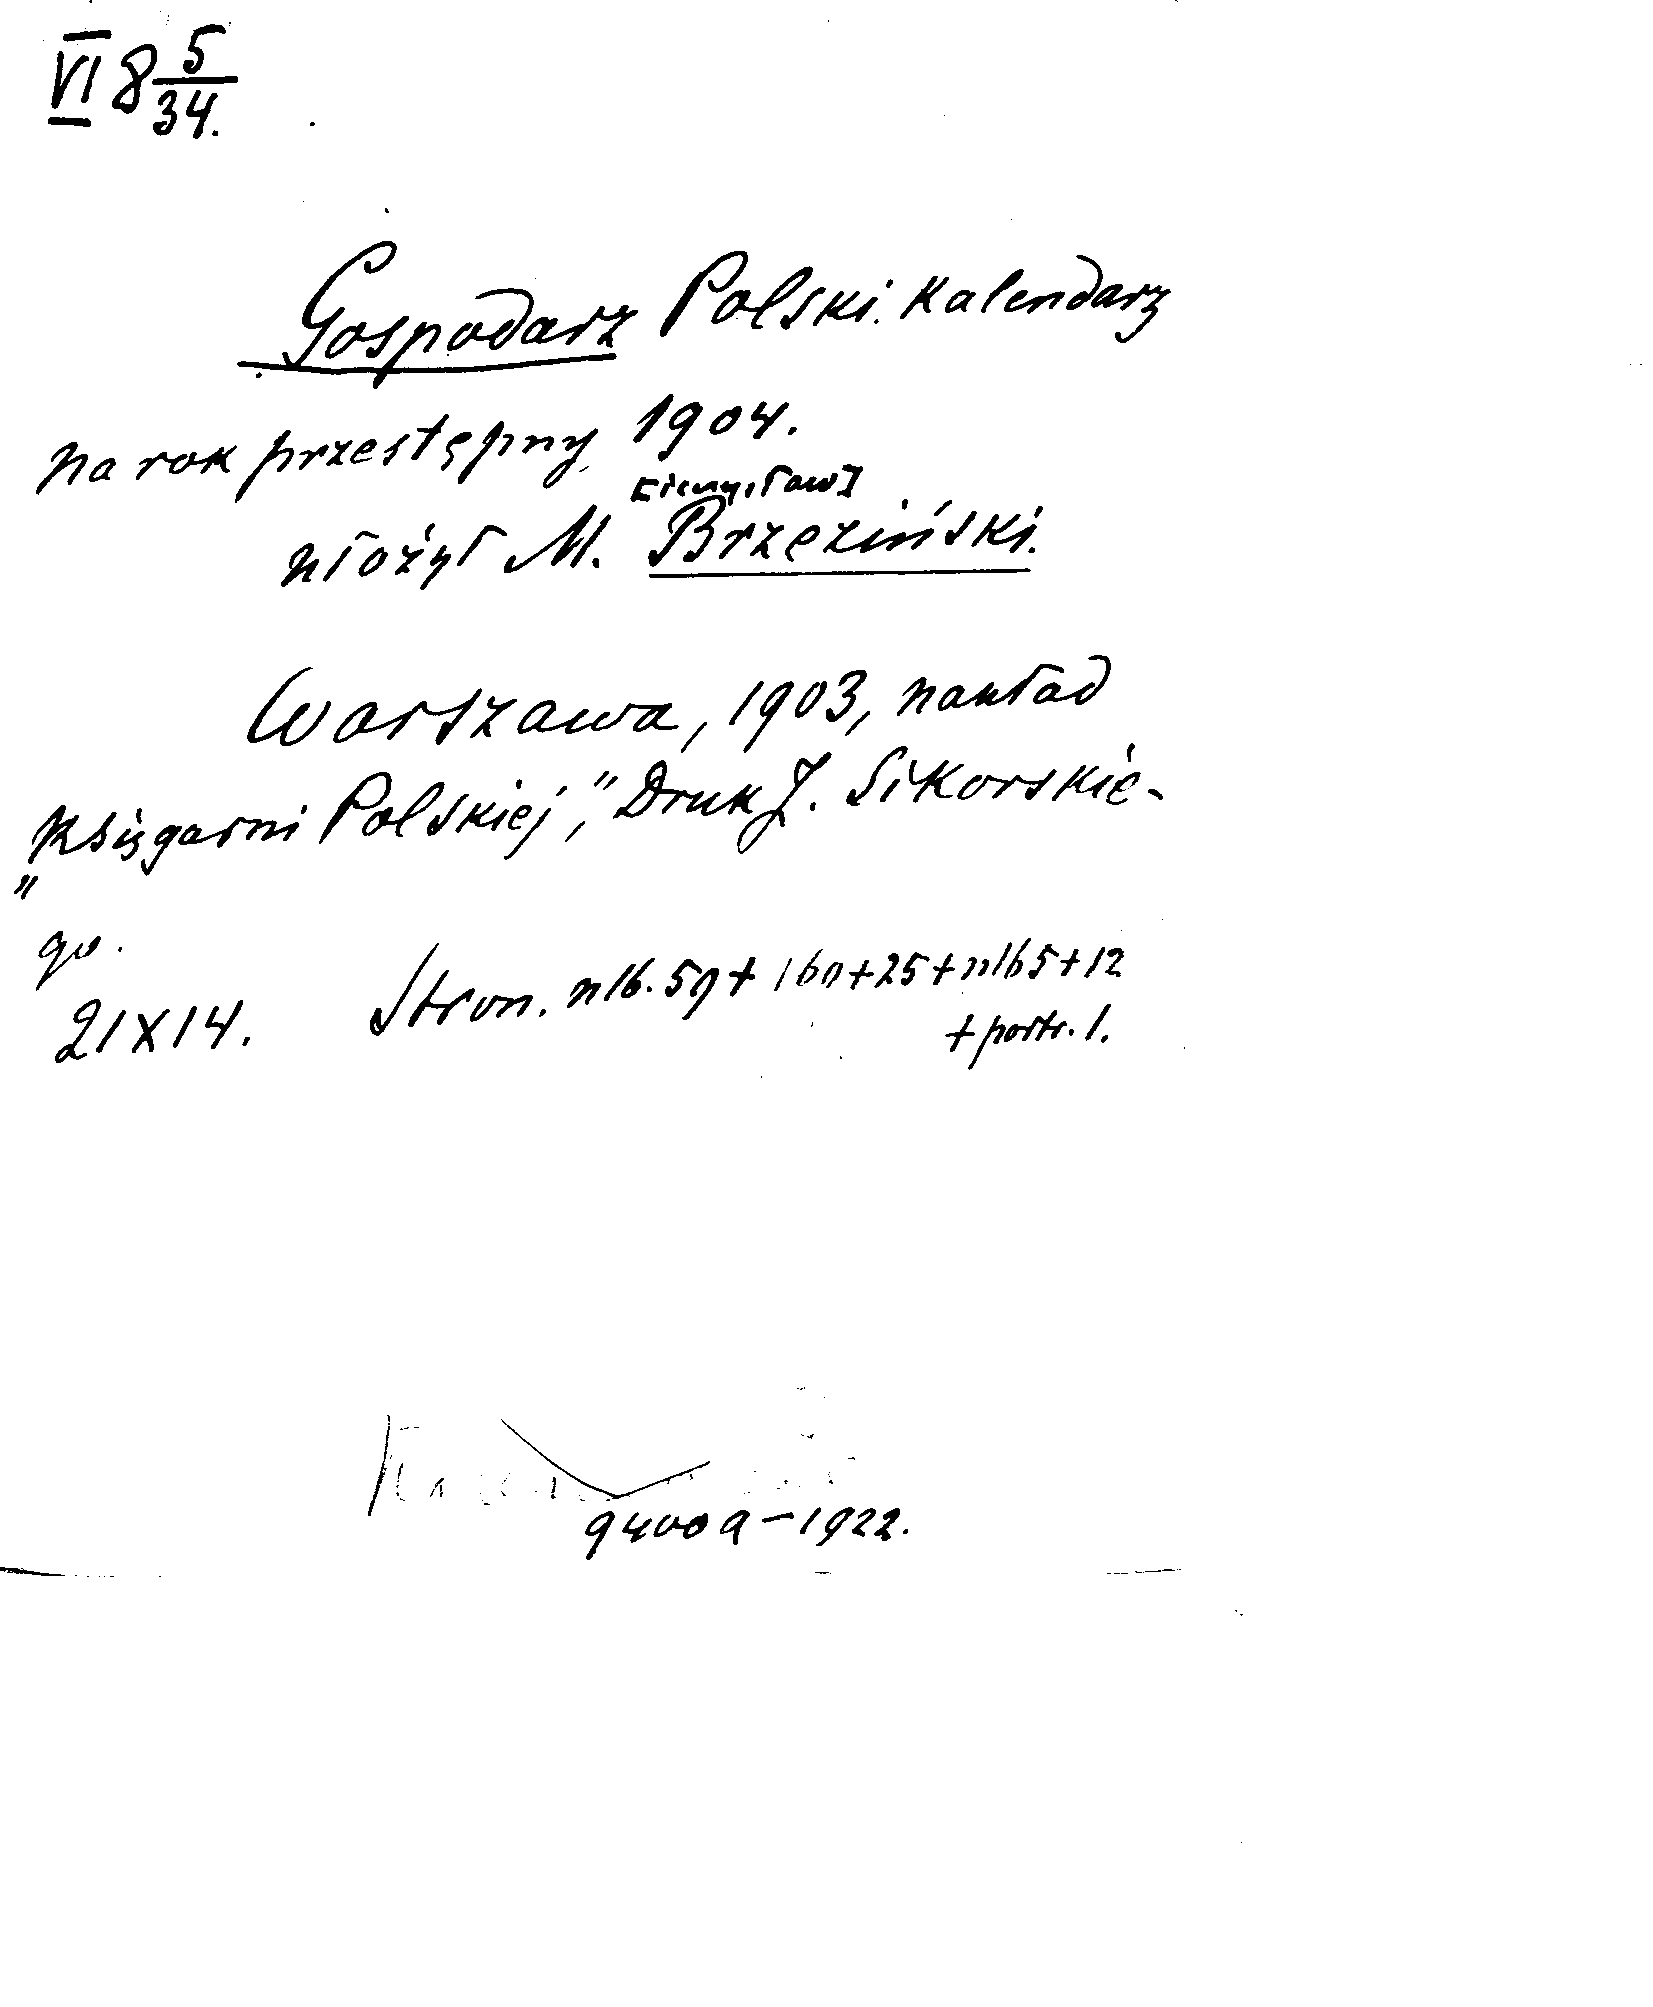 VI 8 5/34.
Gospodarz Polski. Kalendarz
na rok przestępny 1904.
ułożył M. Brzeziński.
Warszawa, 1903, nakład
„Księgarni Polskiej”, Druk J. Sikorskie-
go.
21X14. Stron. nlb. 59+160+25+nlb5+12
+portr. 1.
9400 a-1922.